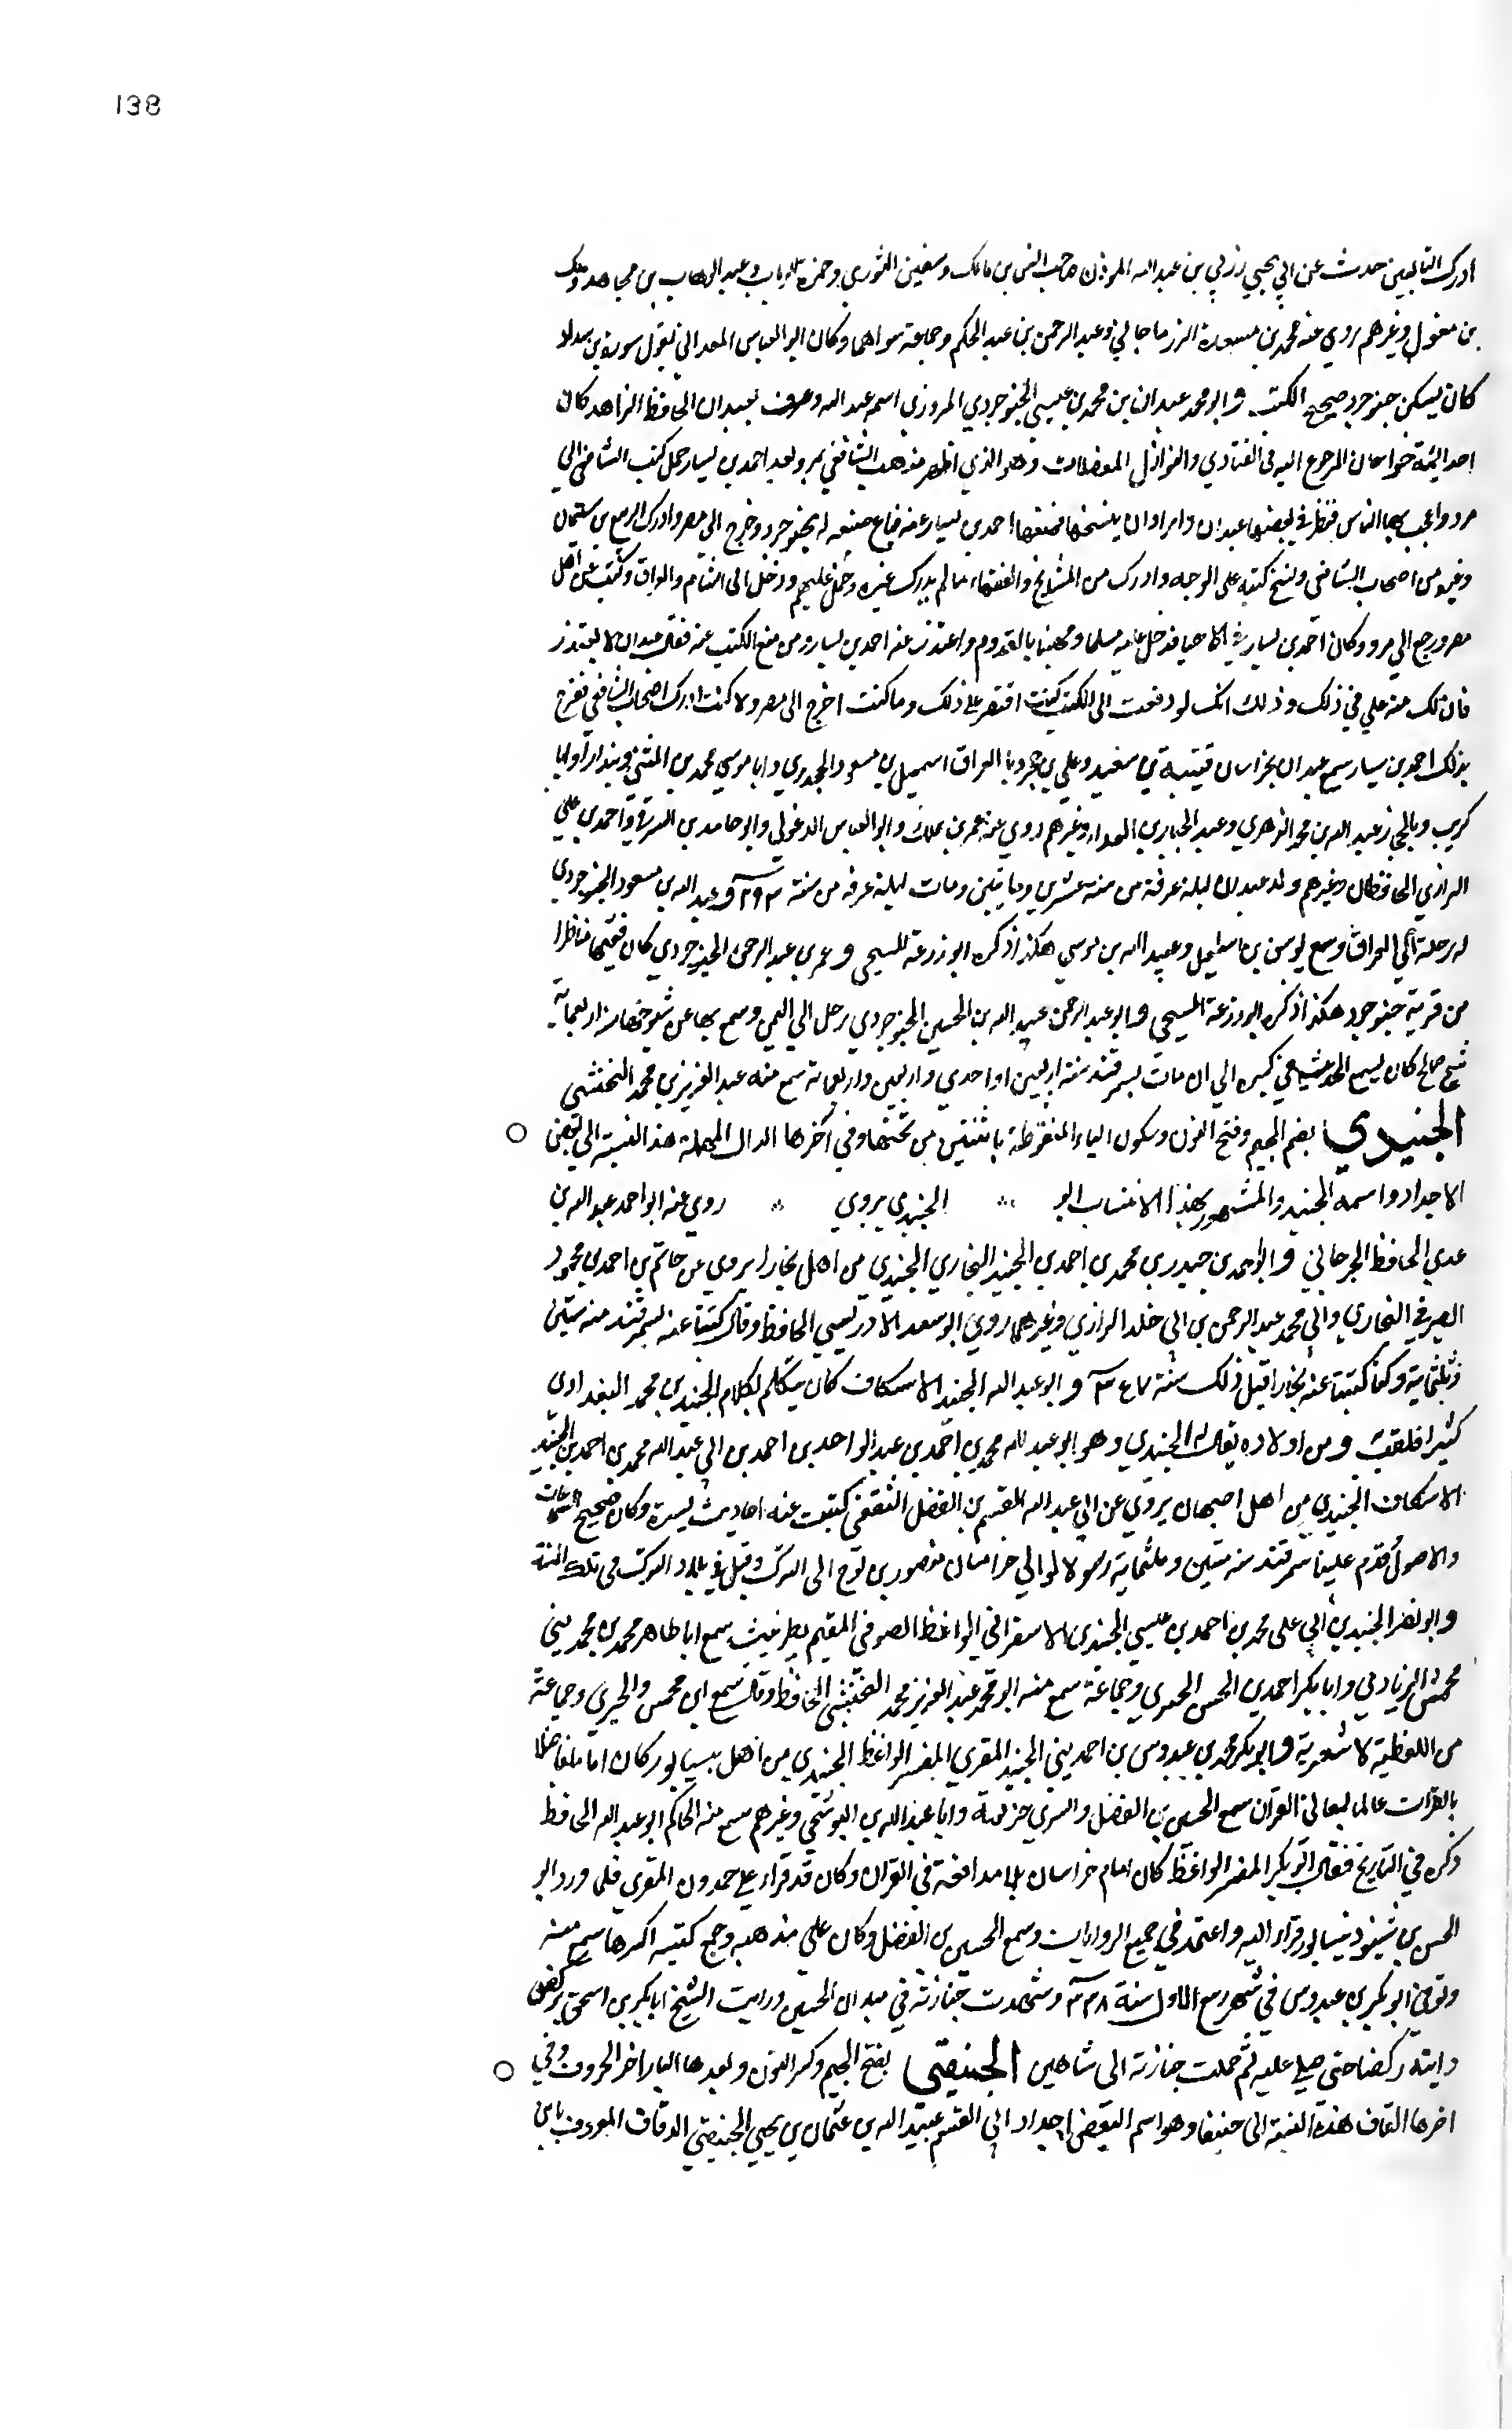 138
ادرك التابعين حدث عن ابي يحيي زربي بن عبد الله الموذن صاحب انس بن مالك وسفين الثوري وحمزه الزيات وعبد الوهاب بن مجاهد ومالك
بن مغول وغيرهم روي عنه محمد بن مسعدة الزرماجاني وعبد الرحمن بن عبد الحكم وجماعة سواهما وكان ابو العباس المعداني يقول سورة بن
كان يسكن جنوجرد صحيح الكتب و ابو محمد عبدان بن محمد بن عيسي الجنوجردي المروزي اسمه عبد الله وعرف بعبدان الحافظ الزاهد كان
احد ائمة خراسان المرجوع اليه في الفتاوي والنوازل المعضلات وهو الذي اظهر مذهب الشافعي بمرو بعد احمد بن سيار حمل كتب الشافعي الي
مرو واعجب بها الناس فنظر في بعضها عبدان واراد ان ينسخها فمنعها احمد بن سيار عنه فباع ضيعه له بجنوجرد وخرج الي مصر وادرك الربيع بن سليمان
وغيره من اصحاب الشافعي ونسخ كتبه علي الوجه وادرك من المشايخ والفقهاء ما لم يدرك غيره وحمل عليهم ودخل الي الشام والعراق وكتب عن اهل
مصر ورجع الي مرو وكان احمد بن سيار في الاحيا فدخل عليه مسلما ومهنيا بالقدوم واعتذر عنه احمد بن سيار ومن منع الكتب عنه فقال عبدان لا تعتذر
فان لك منه علي في ذلك وذلك انك لو دفعت الي الكتب كنت اقتصر علي ذلك وما كنت اخرج الي مصر ولا كنت ادرك اصحاب الشافعي ففرح
بذلك احمد بن سيار سمع عبدان بخراسان قتيبة بن سعيد وعلي بن حجر وبالعراق اسمعيل بن مسعود الجحدري وابا موسي محمد بن المثني وبندار وابا
كريب وبالحجاز عبد الله بن محمد الزهري وعبد الجبار بن العلاء وغيرهم روي عنه عمر بن علك وابو العباس الدغولي وابو حامد بن الشرقي واحمد بن علي
الرازي الحافظان وغيرهم ولد عبدان ليلة عرفة من سنة عشرين ومايتين ومات ليلة عرفه من سنة ٢٩٣ و عبد الله بن مسعود الجنوجردي
له رحلة الي العراق وسمع يونس بن اسمعيل وعبيد الله بن موسي هكذا ذكره ابو زرعة السبحي و عمر بن عبد الرحمن الجنوجردي كان فقيها مناظرا
من قرية جنوجرد هكذا ذكره ابو زرعة السبحي و ابو عبد الرحمن عبيد الله بن الحسين الجنوجردي رحل الي اليمن وسمع بها عن شيوخها سنة اربعماية
شيخ صالح كان يسمع الحديث في كبره الي ان مات بسمرقند سنة اربعين او احدي واربعين واربعماية سمع منه عبد العزيز بن محمد النخشبي
الجنيدي بضم الجيم وفتح النون وسكون الياء المنقوطة باثنتين من تحتها وفي آخرها الدال المهملة هذه النسبة الي بعض
الاجداد واسمه الجنيد والمشهور بهذا الانتساب ابو الجنيدي يروي روي عنه ابو احمد عبد الله بن
عدي الحافظ الجرجاني و ابو احمد بن حيدر بن محمد بن احمد بن الجنيد البخاري الجنيدي من اهل بخارا يروي عن حاتم بن احمد بن محمود
الصيرفي البخاري وابي محمد عبد الرحمن بن ابي خلد الرازي وغيرهما روي ابو سعد الادريسي الحافظ وقال كتبنا عنه بسمرقند سنة ستين
وثلثماية وكنا كتبنا عنه ببخارا قبل ذلك سنة ٣٤٧ و ابو عبد الله الجنيد الاسكاف كان يتكلم بكلام الجنيد بن محمد البغدادي
كثيرا فلقب و من اولاده يقال له الجنيدي وهو ابو عبد الله محمد بن احمد بن عبد الواحد بن احمد بن ابي عبد الله محمد بن احمد بن الجنيد
الاسكاف الجنيدي من اهل اصبهان يروي عن ابي عبد الله القسم بن الفضل الثقفي كتبت عنه احاديث يسيرة وكان صحيح السماعات
والاصول قدم علينا سمرقند سنة ستين وثلثماية رسولا لوالي خراسان منصور بن نوح الي الترك وقتل في بلاد الترك في تلك السنة
وابو نصر الجنيد بن ابي علي محمد بن احمد بن عيسي الجنيدي الاسفرايني الواعظ الصوفي المقيم بطريثيث سمع ابا طاهر محمد بن محمد بن
محمش الزيادي وابا بكر احمد بن الحسن الحيري وجماعة سمع منه ابو محمد عبد العزيز محمد النخشبي الحافظ وقال سمع ابن محمش والحيري وجماعة
من اللفظية الاشعرية و ابو بكر محمد بن عبدوس بن احمد بن الجنيد المقري المفسر الواعظ الجنيدي من اهل نيسابور كان اماما فاضلا
بالقرات عالما بمعاني القرآن سمع الحسين بن الفضل والسري خزيمة وابا عبد الله بن البوشنجي وغيرهم سمع منه الحاكم ابو عبد الله الحافظ
ذكره في التاريخ فقال ابو بكر المفسر الواعظ كان امام خراسان بلا مدافعة في القران وكان قد قراء علي حمدون المقري فلما ورد ابو
الحسن بن شنبوذ نيسابور قراء اليه واعتمد في جميع الروايات وسمع الحسين بن الفضل وكان علي مذهبه وجمع كتبه اكثرها سمع منه
وتوفي ابو بكر بن عبدوس في شهر ربيع الاول سنة ٣٣٨ وشهدت جنازته في ميدان الحسين ورايت الشيخ ابا بكر بن اسحق يركض
دابته ركضا حتي صلي عليه ثم حملت جنازته الي شاهين الجنيقي بفتح الجيم وكسر النون وبعدها الياء اخر الحروف وفي
اخرها القاف هذه النسبة الي جنيقا وهو اسم لبعض اجداد ابي القسم عبيد الله بن عثمان بن يحيي الجنيقي الدقاق المعروف بابن